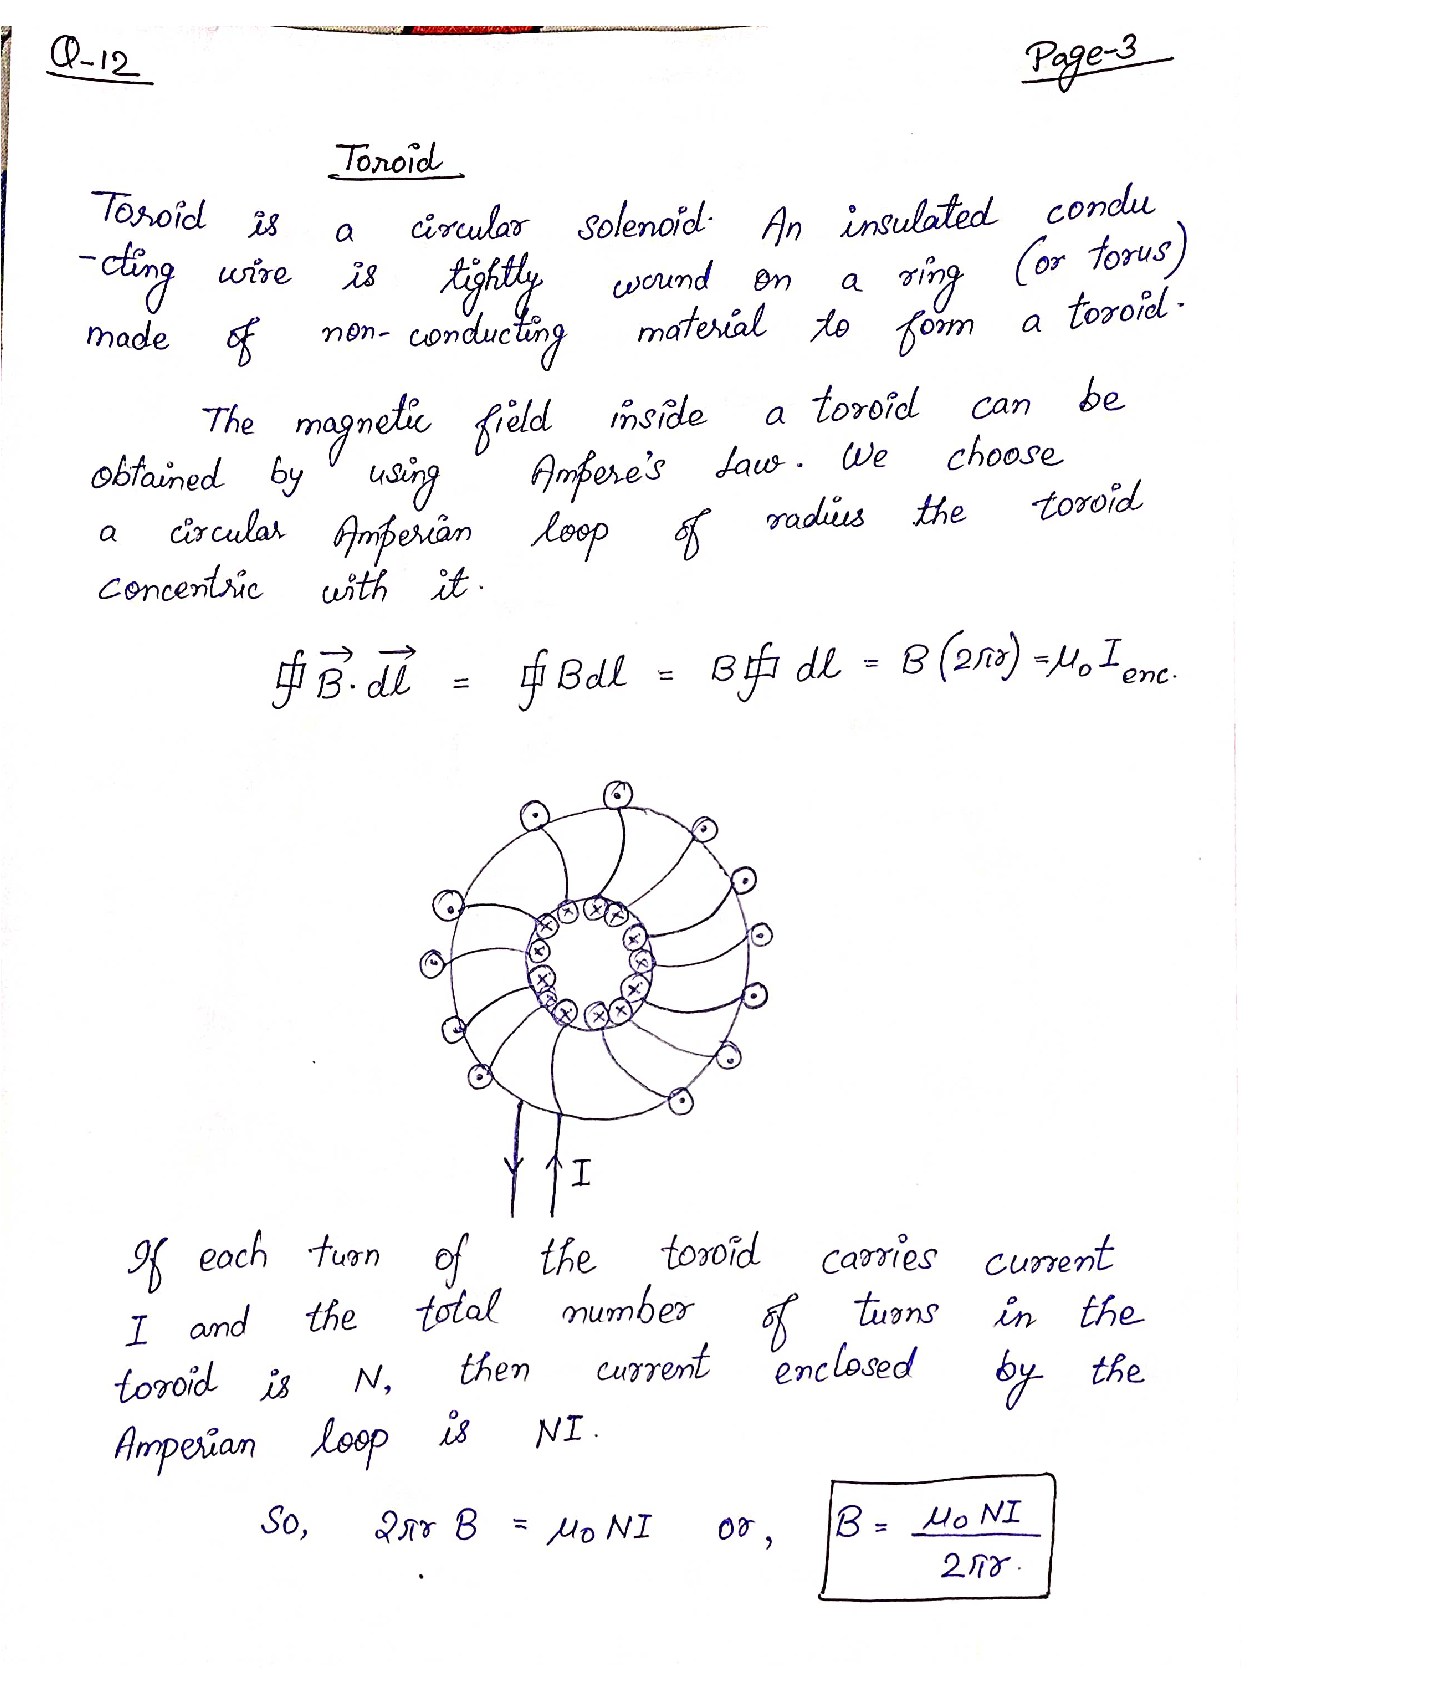 Q-12
Page-3
Toroid
Toroid is a circular solenoid. An insulated condu
-cting wire is tightly wound on a ring (or torus)
made of non-conducting material to form a toroid.
The magnetic field inside a toroid can be
obtained by using Ampere's Law. We choose
a circular Amperian loop of radius the toroid
concentric with it.
∮ B⃗.dl⃗ = ∮ Bdl = B∮ dl = B(2πr) = μ₀ I enc.
I
If each turn of the toroid carries current
I and the total number of turns in the
toroid is N, then current enclosed by the
Amperian loop is NI.
So, 2πr B = μ₀ NI or, B = μ₀ NI / 2πr.